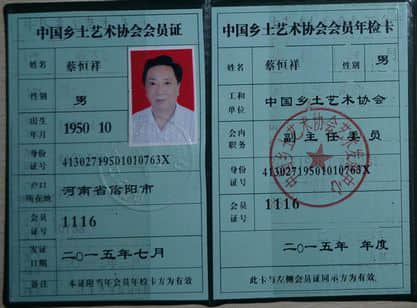 中国乡土艺术协会会员证
姓名 蔡恒祥
性别 男
出生年月 1950 10
身份证号 41302719501010763X
户口所在地 河南省信阳市
会员证号 1116
发证日期 二〇一五年七月
备注 本证附当年会员年检卡方为有效
中国乡土艺术协会会员年检卡
姓名 蔡恒祥 性别 男
工作单位 中国乡土艺术协会
会内职务 副主任委员
身份证号 41302719501010763X
会员证号 1116
二〇一五年 年度
此卡与左侧会员证同示方为有效